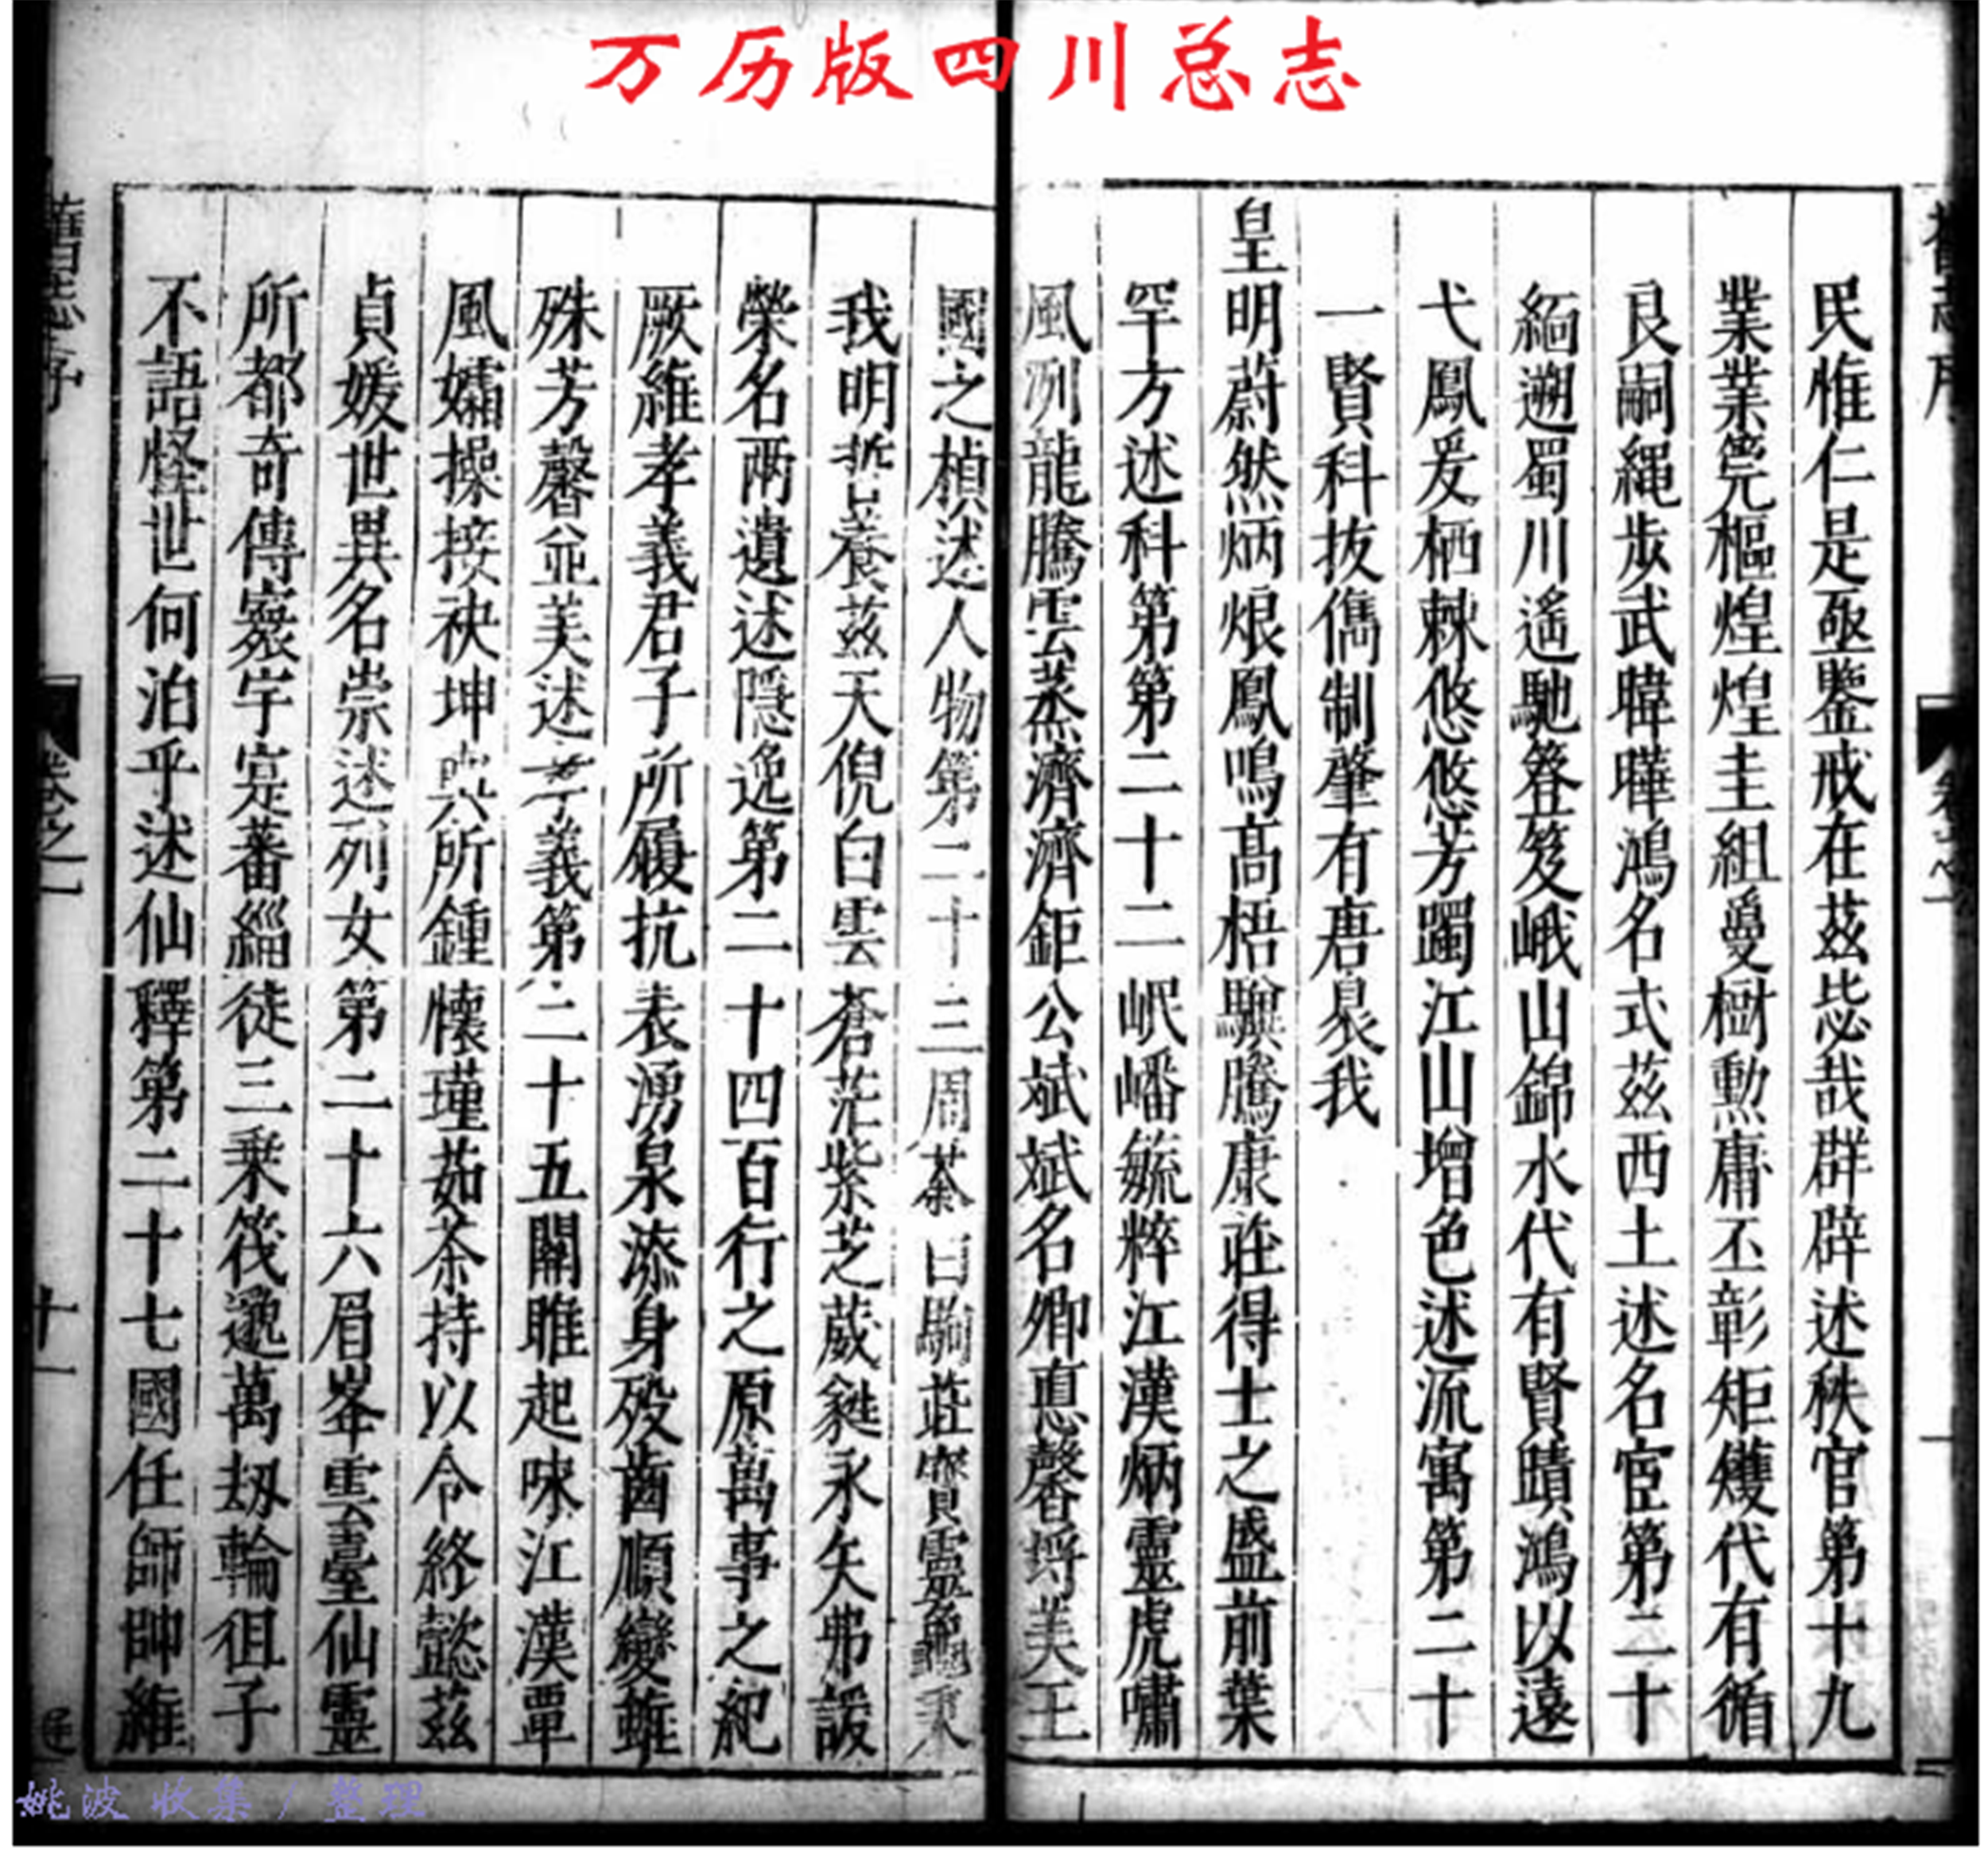 万历版四川总志
民惟仁是亟鑒戒在茲毖哉群辟述秩官第十九
業業筦樞煌煌圭組㬅樹勲庸丕彰矩矱代有循
良嗣繩步武暐曄鴻名式茲西土述名宦第二十
緬遡蜀川遙馳簦笈峨山錦水代有賢蹟鴻以遠
弋鳳爰栖棘悠悠芳躅江山增色述流寓第二十
一賢科拔儁制肇有唐泉我
皇明蔚然炳烺鳳鳴高梧驥騰康莊得士之盛前葉
罕方述科第第二十二岷嶓毓粹江漢炳靈虎嘯
風冽龍騰雲蒸濟濟鉅公斌斌名卿悳馨埒美王
國之楨述人物第二十三周莽白駒莊寳靈龜
我明哲養茲天倪白雲蒼茫紫芝葳蕤永矢弗諼
榮名兩遺述隱逸第二十四百行之原萬事之紀
厥維孝義君子所履抗表湧泉添身歿齒順變雖
殊芳馨並美述孝義第二十五關雎起咏江漢覃
風孀操接袂坤所鍾懷瑾茹荼持以令終懿茲
貞媛世異名崇述列女第二十六眉峯雲臺仙靈
所都奇傳寰宇寔蕃緇徒三乗筏邈萬刼輪徂子
不語怪世何泊乎述仙釋第二十七國任師帥維
舊志序
卷之一
十一
姚波 收集 / 整理